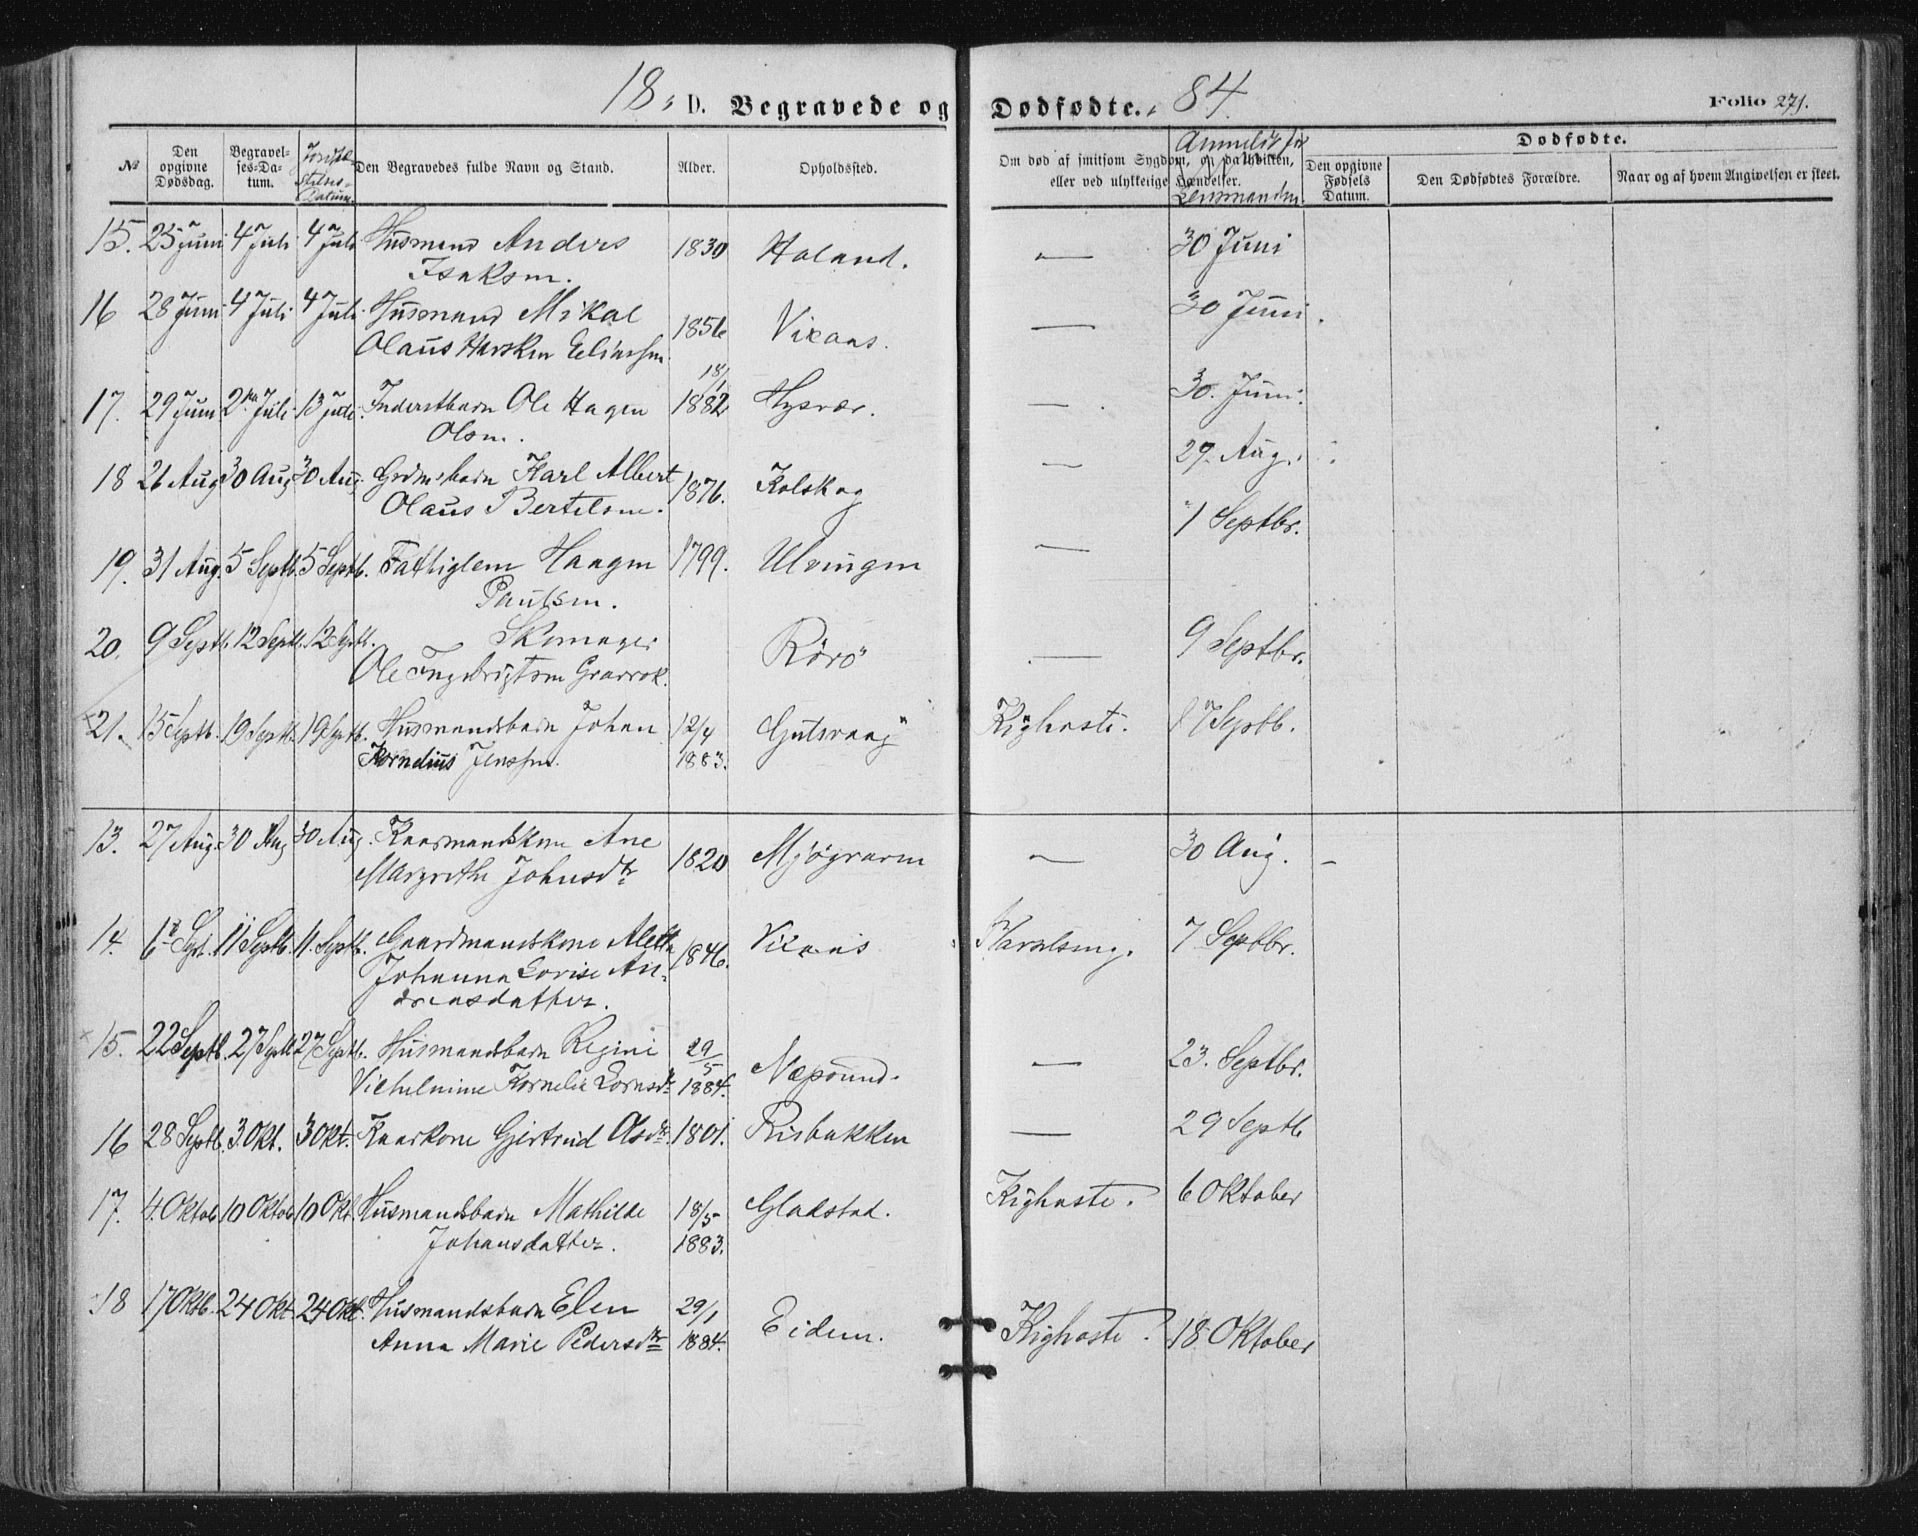 18 D. Begravede og Dødfødte. 84. Folio 271.
№ Den opgivne Dødsdag. Begravelses-Datum. Jordfæstelses-Datum. Den Begravedes fulde Navn og Stand. Alder. Opholdssted. Om død af smitsom Sygdom, og paa hvilken, eller ved ulykkelige Hændelser. Anmeldt for Lensmanden. Dødfødte. Den opgivne Fødsels Datum. Den Dødfødtes Forældre. Naar og af hvem Angivelsen er skeet.
15. 25 Juni 4 Juli 4 Juli Husmand Anders 1830 Haland. — 30 Juni
Isaksen.
16 28 Juni 4 Juli 4 Juli Husmand Mikal 1856 Vikans. — 30 Juni.
Olaus Eliassen
17. 29 Juni 2 Juli 13 Juli Inderstbarn Ole Hagen 18/1 1882 Hysvær. — 30. Juni.
Olsen.
18 26 Aug 30 Aug 30 Aug. Grdmsbarn Karl Albert 1876. Kolskog — 29. Aug.
Olaus Bertelsen.
19. 31 Aug. 5 Septb. 5 Septb. Fattiglem Haagen 1799. Ulvingen — 1 Septbr.
Paulsen.
20. 9 Septb. 12 Septb. 12 Septb. Skomager Rørø — 9 Septbr.
Ole Ingebrigtsen
21. 15 Septb. 19 Septb. 19 Septb. Husmandsbarn Johan 12/4 1883. Gutsvaag Kighoste. 17 Septb.
Kornelius Jenssen.
13. 27 Aug. 30 Aug 30 Aug. Kaarmandskone Ane 1820 — 30 Aug. —
Margrethe Johnsdtr
14. 6 Sept. 11 Septb. 11. Septb. Gaardmandskone Aletta 1846. Vikans Barselseng. 7 Septbr.
Johanna Lovise An-
dreasdatter.
15. 22 Septb. 27 Septb 27 Septb. Husmandsbarn Regine 29/5 1884. Næpsund. — 23. Septbr.
Vilhelmine Kornelia Lornsdtr
16 28 Septb. 3. Okt. 3 Okt. Kaarkone Gjertrud Olsdtr 1801. Risbakken — 29 Septb
17. 4. Oktob. 10 Oktob 10 Okt. Husmandsbarn Mathilde 18/5 1883. Gladstad. Kighoste. 6 Oktober
Johansdatter.
18 17 Oktb. 24 Okt. 24 Okt. Husmandsbarn Elen 29/1 1884. Eidem. Kighoste. 18 Oktober
Anna Marie Pedersdtr